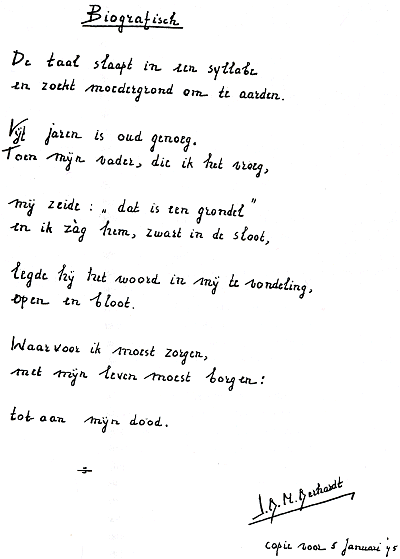 Biografisch
De taal slaapt in een syllabe
en zoekt moedergrond om te aarden.
Vijf jaren is oud genoeg.
Toen mijn vader, die ik het vroeg,
mij zeide: „dat is een grondel"
en ik zàg hem, zwart in de sloot,
legde hij het woord in mij te vondeling,
open en bloot.
Waarvoor ik moest zorgen,
met mijn leven moest borgen:
tot aan mijn dood.
copie voor 5 Januari '75